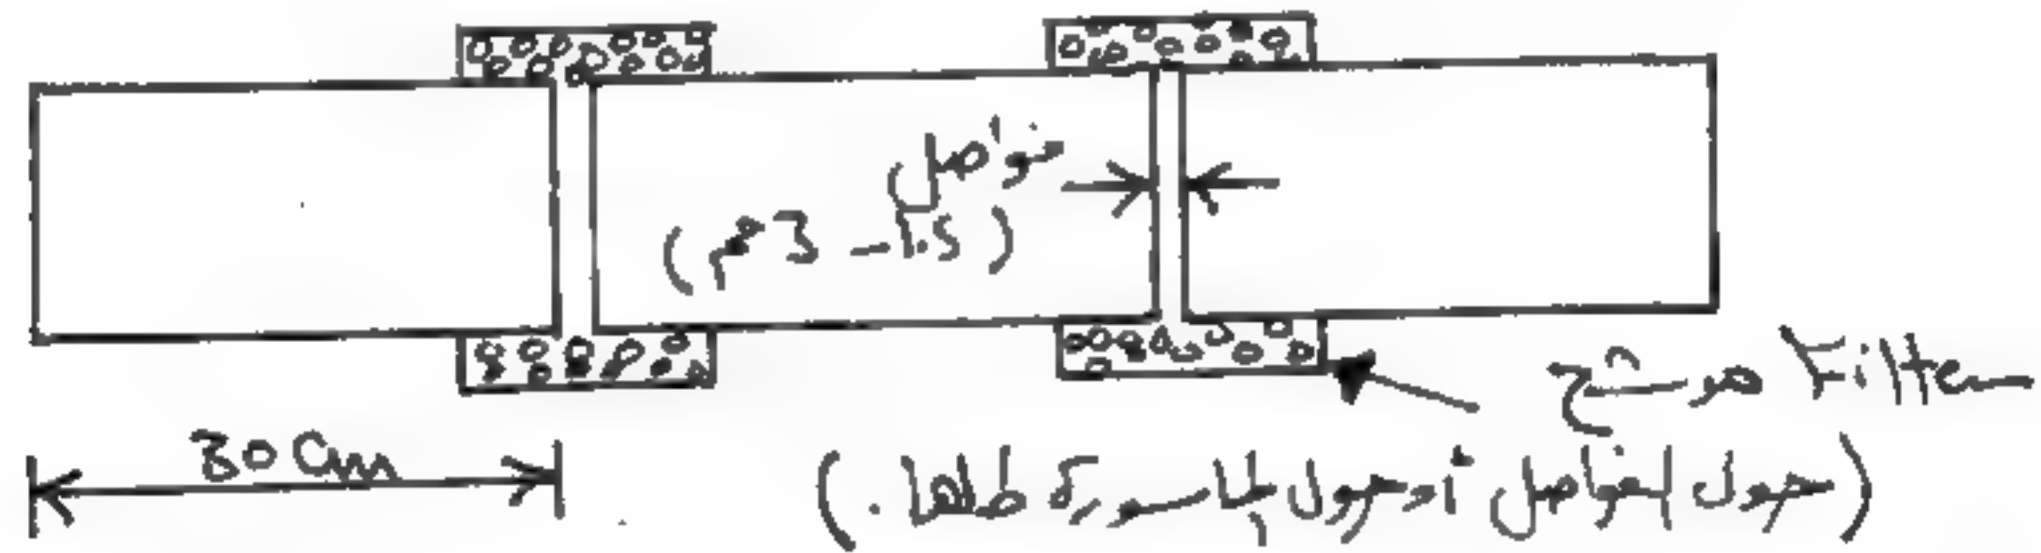 فواصل
(1.5 - 3 مم)
مرشح Filter
30 Cm
(حول الفواصل أو حول الماسورة كلها.)